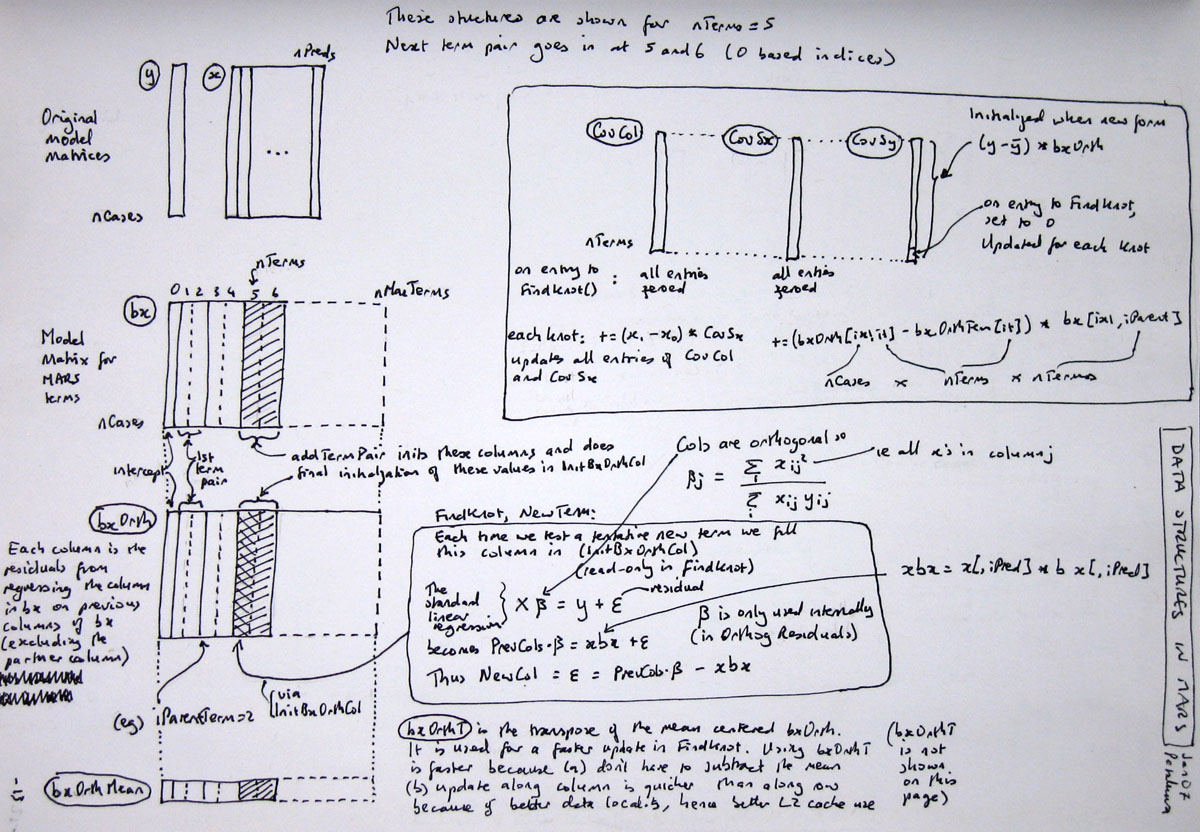 These structures are shown for nTerms = 5
Next term pair goes in at 5 and 6 (0 based indices)
nPreds
y
x
Original
model
matrices
...
nCases
CovCol
CovSx
CovSy
Initialized when new form
(y-ȳ) * bxOrth
on entry to FindKnot,
set to 0
Updated for each knot
nTerms
on entry to
FindKnot() :
all entries
zeroed
all entries
zeroed
each knot: += (x₁ - x₀) * CovSx
updates all entries of CovCol
and CovSx
+= (bxOrth[ix1,it] - bxOrthMean[it]) * bx[ix1, iParent]
nCases × nTerms × nTerms
nTerms
0 1 2 3 4 5 6
nMaxTerms
bx
Model
Matrix for
MARS
terms
nCases
intercept
1st
term
pair
addTermPair inits these columns and does
final initialization of these values in InitBxOrthCol
Cols are orthogonal so
βj = Σi xij² / Σi xij yij
ie all x's in column j
bxOrth
Each column is the
residuals from
regressing the column
in bx on previous
columns of bx
(excluding the
partner column)
FindKnot, NewTerm:
Each time we test a tentative new term we fill
this column in (InitBxOrthCol)
(read-only in FindKnot)
The
standard
linear
regression
Xβ = y + ε
residual
becomes PrevCols·β = xbx + ε
β is only used internally
(in OrthogResiduals)
Thus NewCol = ε = PrevCols·β - xbx
xbx = x[,iPred] * bx[,iPred]
via
InitBxOrthCol
(eg) iParentTerm=2
bxOrthMean
bxOrthT is the transpose of the mean centered bxOrth.
It is used for a faster update in FindKnot. Using bxOrthT
is faster because (a) don't have to subtract the mean
(b) update along column is quicker than along row
because of better data locality, hence better L2 cache use
(bxOrthT
is not
shown
on this
page)
DATA STRUCTURES IN MARS
Jan07